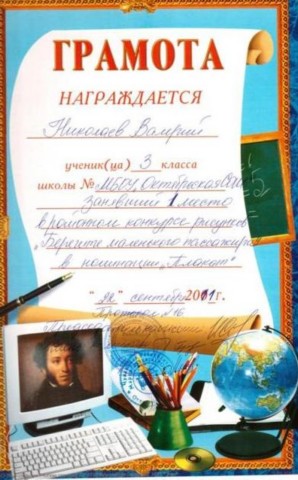 ГРАМОТА
НАГРАЖДАЕТСЯ
Николаев Валерий
ученик(ца) 3 класса
школы № МБОУ Октябрьская СОШ
Занявший 1 место
в районном конкурсе рисунков
"Берегите маленького пассажира"
в номинации "Плакат"
" " сентября 2011г.
Протокол №6